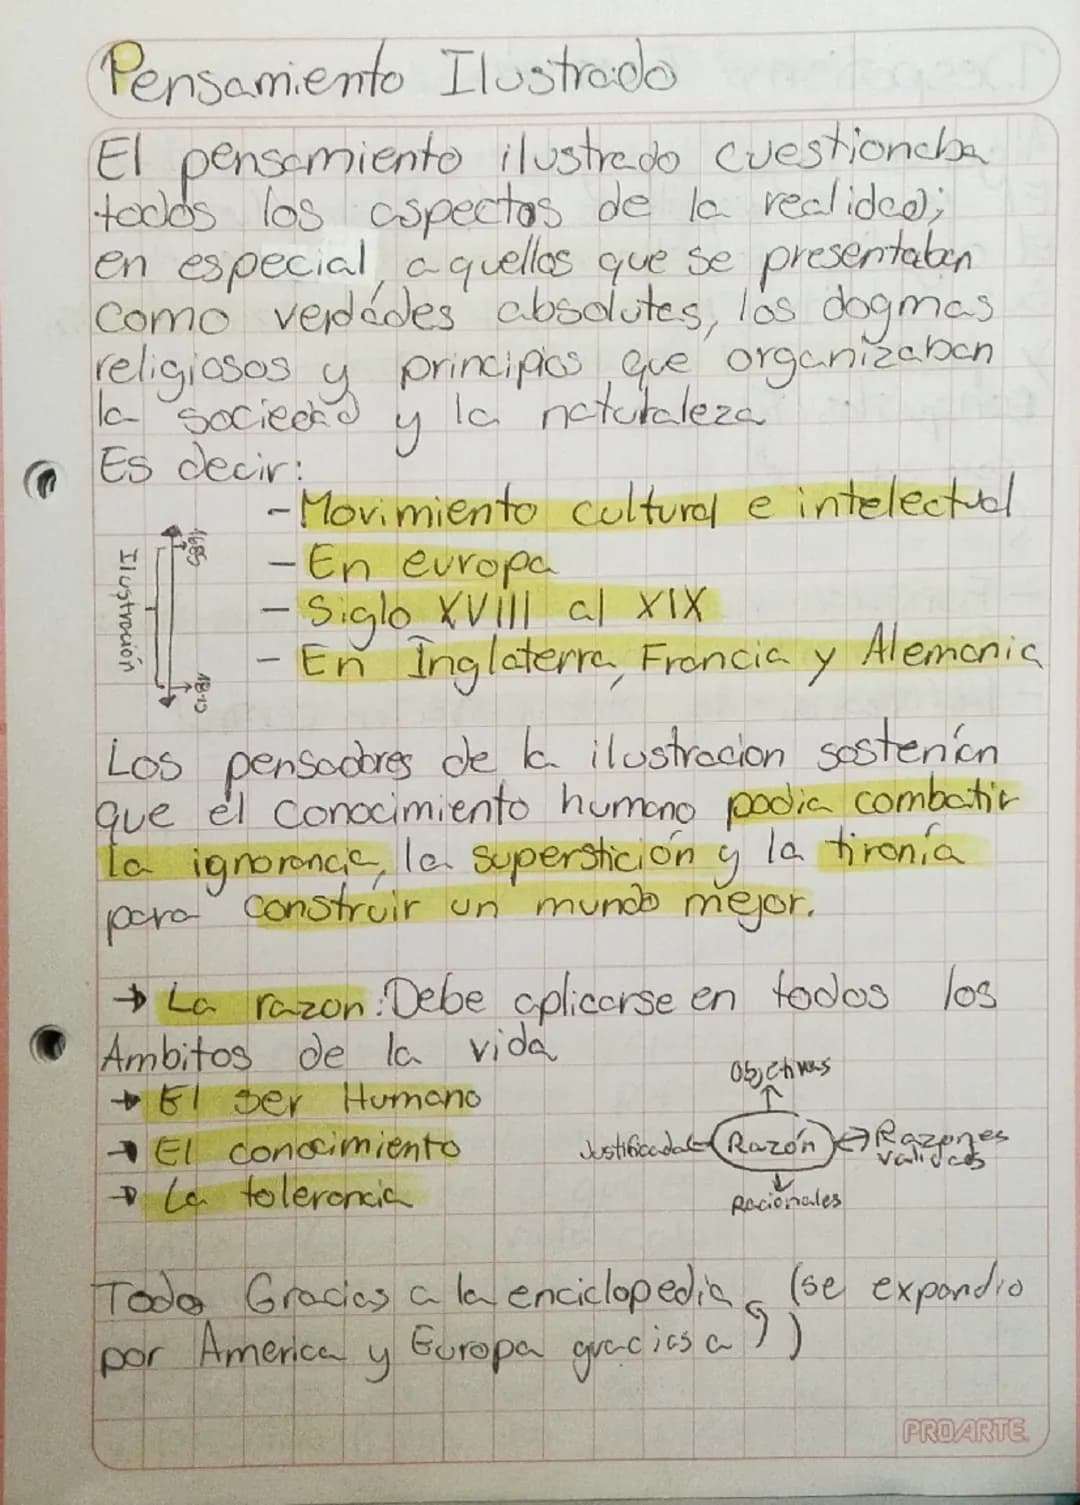 Pensamiento Ilustrado
El pensamiento ilustrado cuestionaba
todos los aspectos de la realidad;
en especial, aquellos que se presentaban
como verdades absolutas, los dogmas
religiosos y principios que organizaban
la sociedad y la naturaleza
Es decir:
- Movimiento cultural e intelectual
- En europa
- Siglo XVIII al XIX
- En Inglaterra, Francia y Alemania
Ilustración
1685
1815
Los pensadores de la ilustracion sostenían
que el conocimiento humano podia combatir
la ignorancia, la superstición y la tiranía
para construir un mundo mejor.
→ La razon: Debe aplicarse en todos los
Ambitos de la vida
→ El ser Humano
→ El conocimiento
→ La tolerancia
Objetivas
Justificadas ← Razón → Razones
validas
Racionales
Todo Gracias a la enciclopedia (se expandio
por America y Europa gracias a )
PROARTE